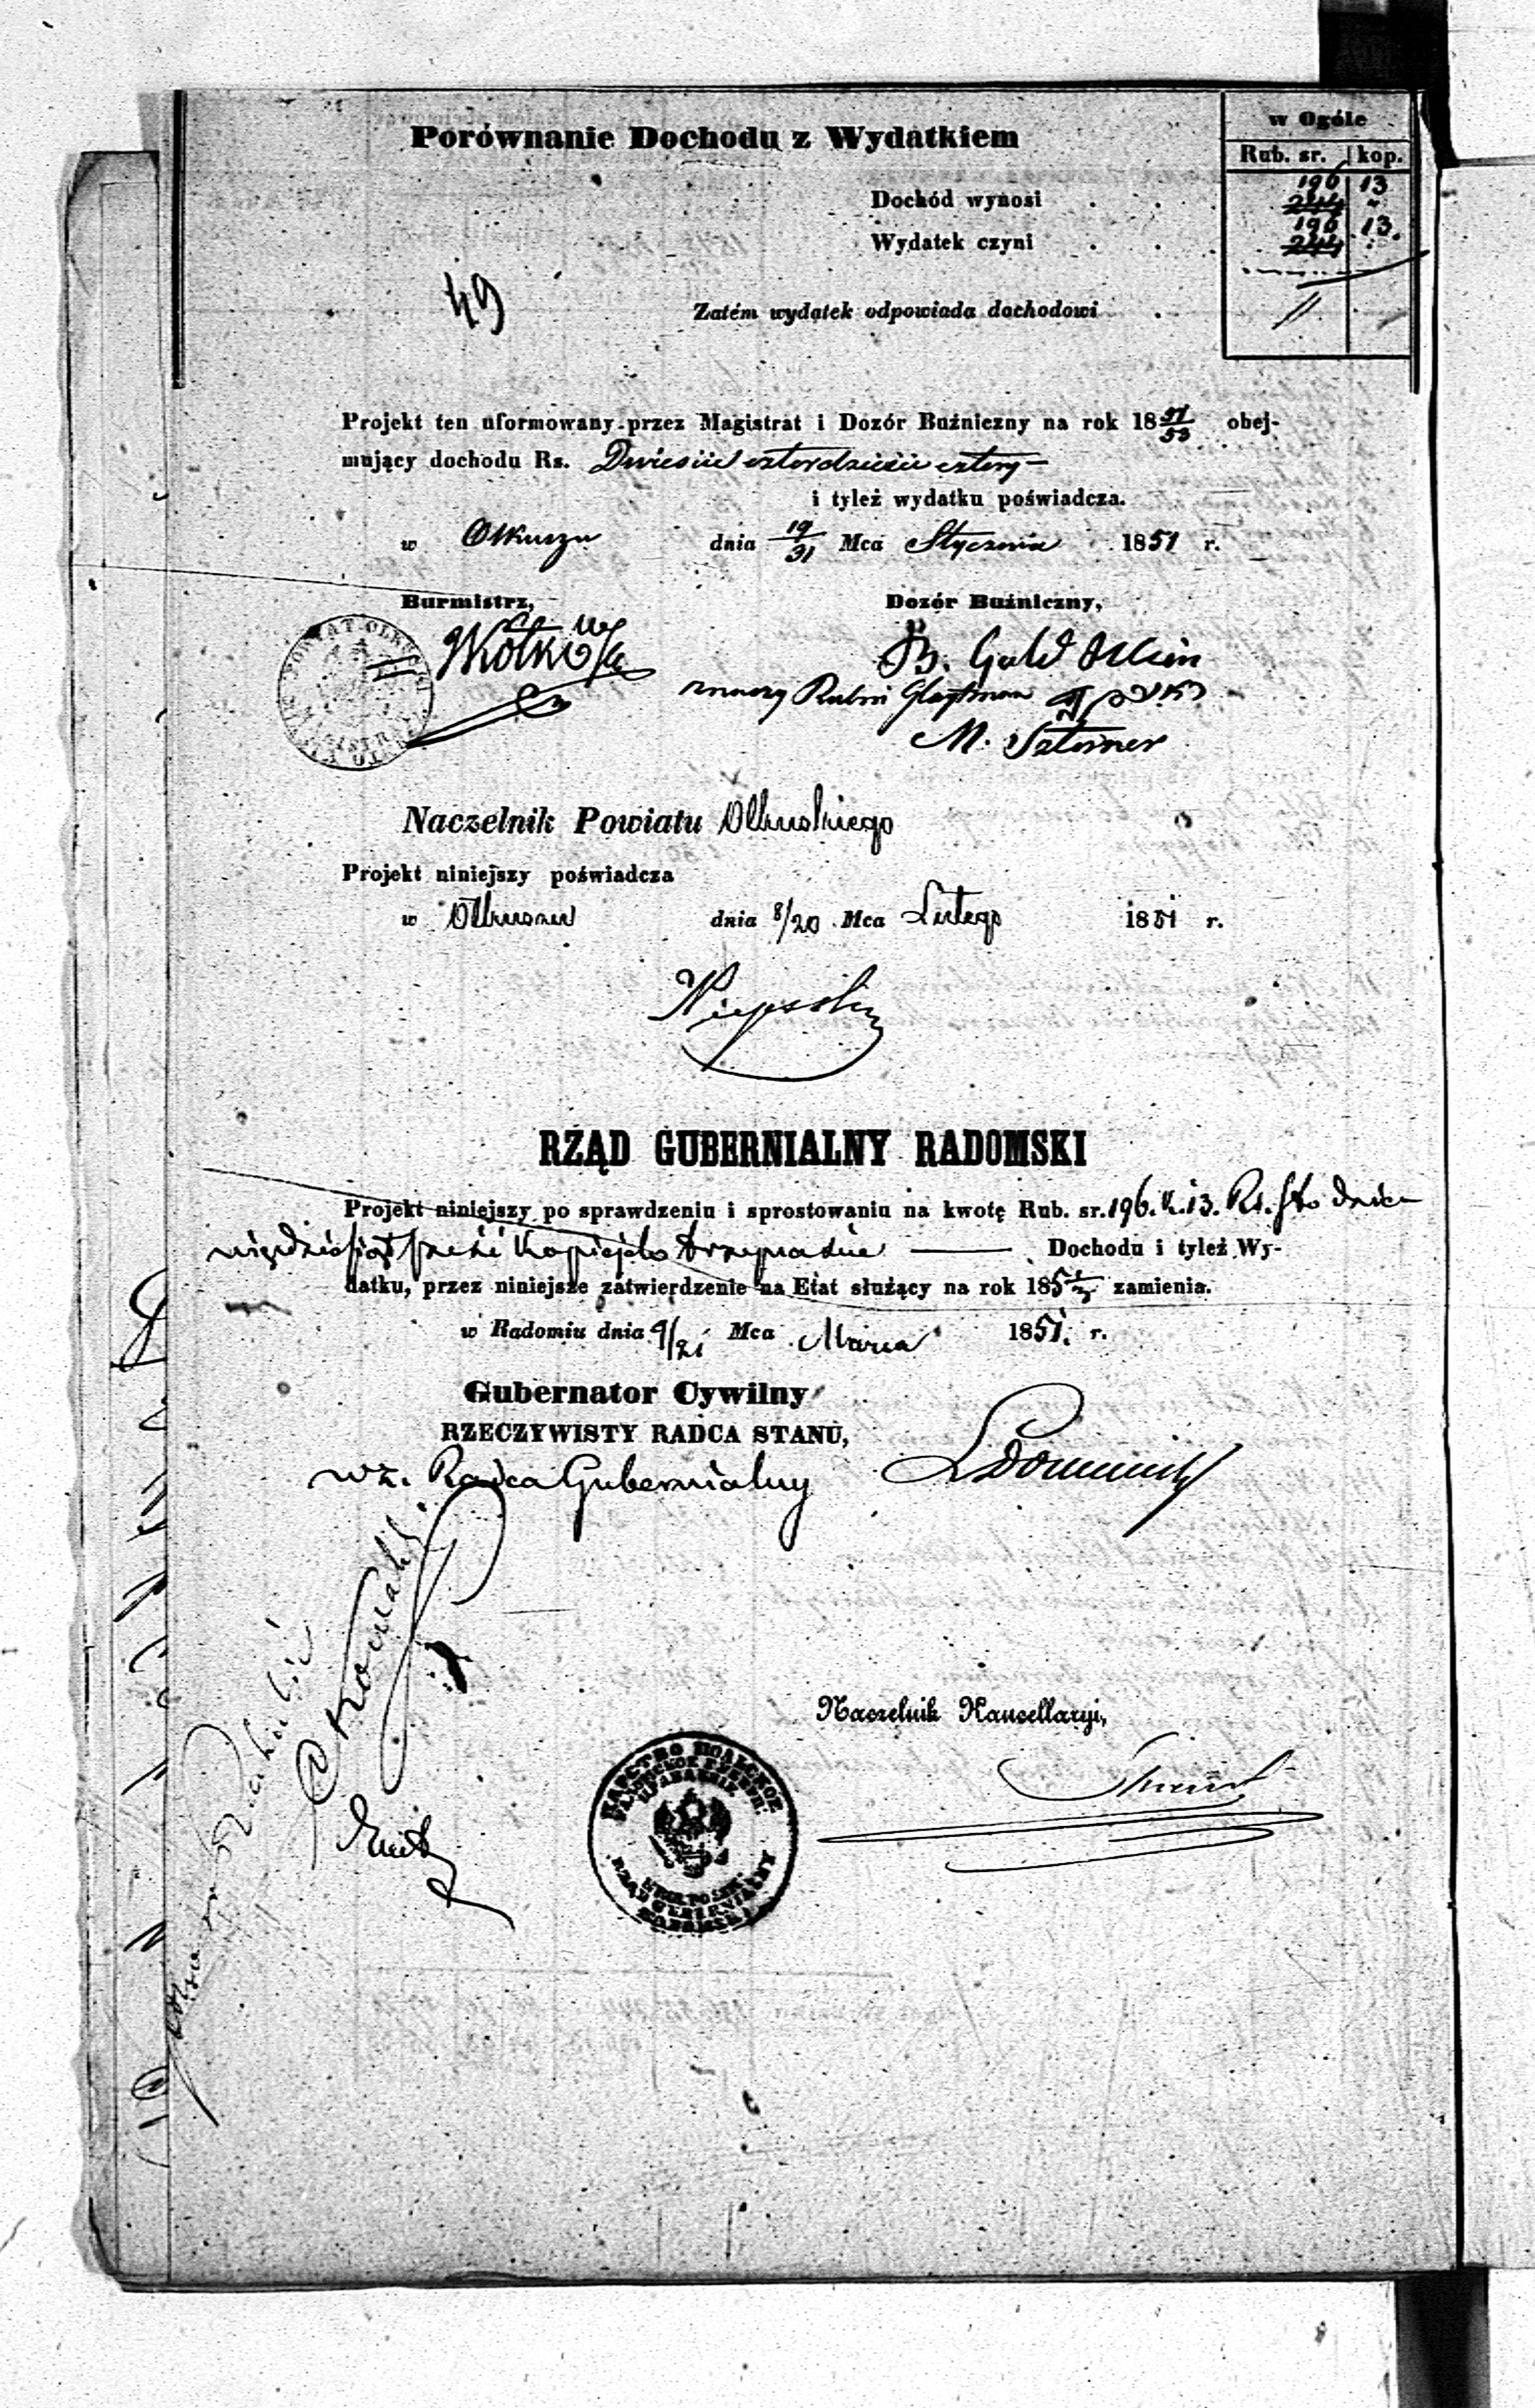 Porównanie Dochodu z Wydatkiem
w Ogóle
Rub. sr. kop.
Dochód wynosi . . . 196 13
244 "
Wydatek czyni . . 196 13.
244
49
Zatém wydatek odpowiada dochodowi . //
Projekt ten uformowany przez Magistrat i Dozór Buźniczny na rok 18 51/53 obej-
mujący dochodu Rs. Dwieście czterdzieści cztery —
i tyleż wydatku poświadcza.
w Olkuszu dnia 19/31 Mca Stycznia 1851 r.
Burmistrz, Dozór Buźniczny,
Rubin
M. Sztorner
Naczelnik Powiatu Olkuskiego
Projekt niniejszy poświadcza
w Olkuszu dnia 8/20 Mca Lutego 1851 r.
RZĄD GUBERNIALNY RADOMSKI
Projekt niniejszy po sprawdzeniu i sprostowaniu na kwotę Rub. sr. 196. k. 13. Rs. sto dzie-
więdziesiąt sześć kopiejek trzynaście — Dochodu i tyleż Wy-
datku, przez niniejsze zatwierdzenie na Etat służący na rok 185 1/3 zamienia.
w Radomiu dnia 9/21 Mca Marca 1851. r.
Gubernator Cywilny
RZECZYWISTY RADCA STANU,
wz. Radca Gubernialny
Naczelnik Kancellaryi,
RZĄD GUBERNIALNY
RADOMSKI